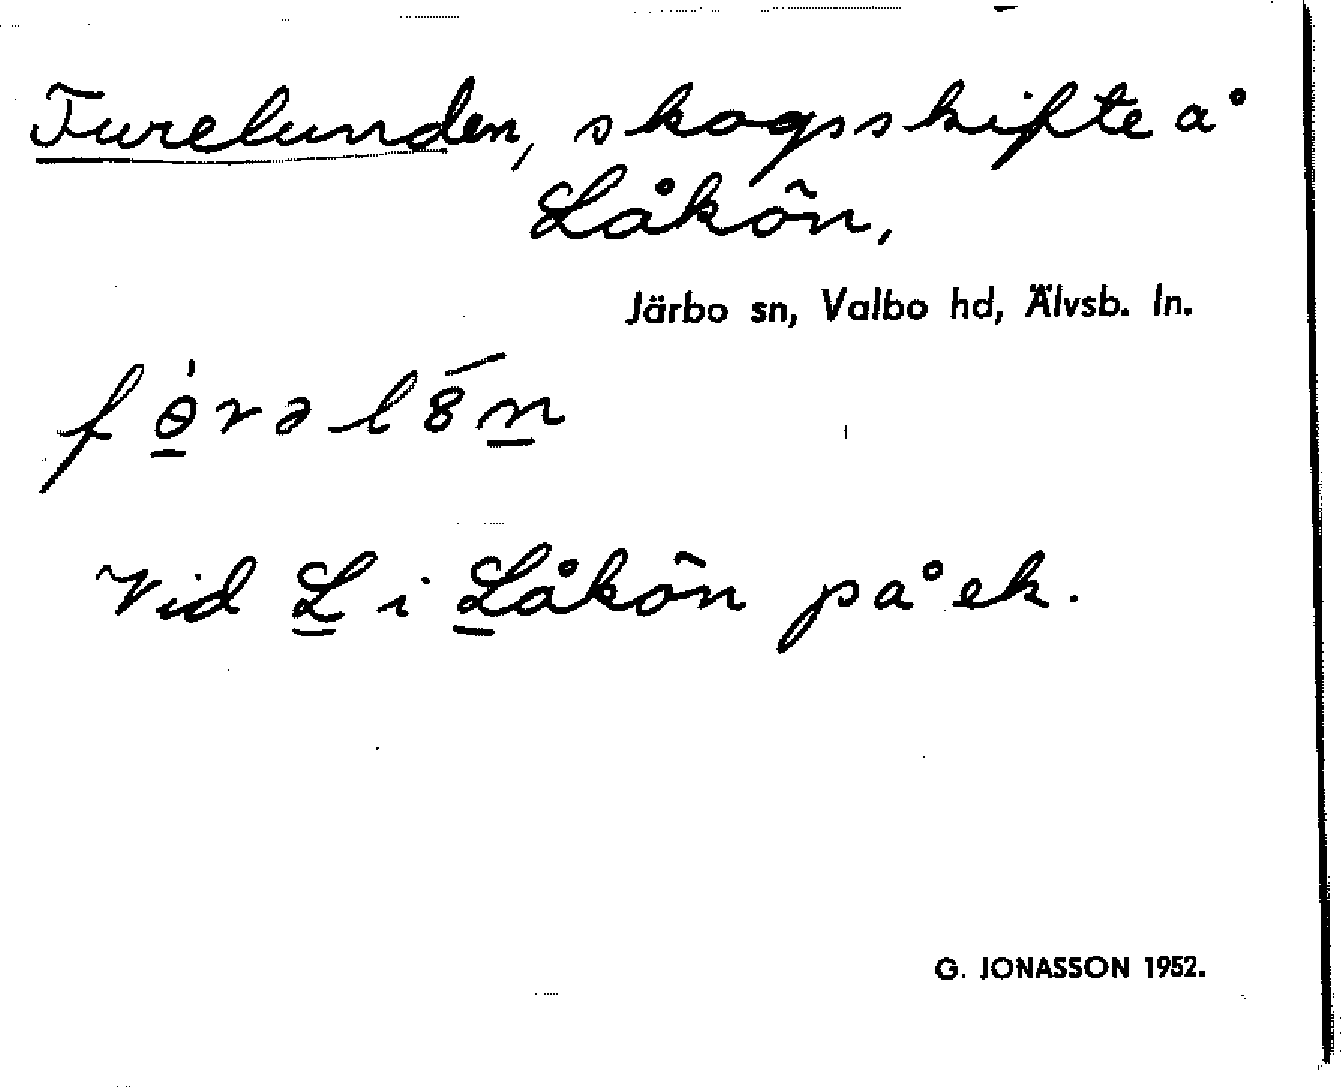 Furelunden, skogsskifte å
Låkön,
Järbo sn, Valbo hd, Älvsb. ln.
fɵ̀rəlȣ́n
Vid L i Låkön på ek.
G. JONASSON 1952.